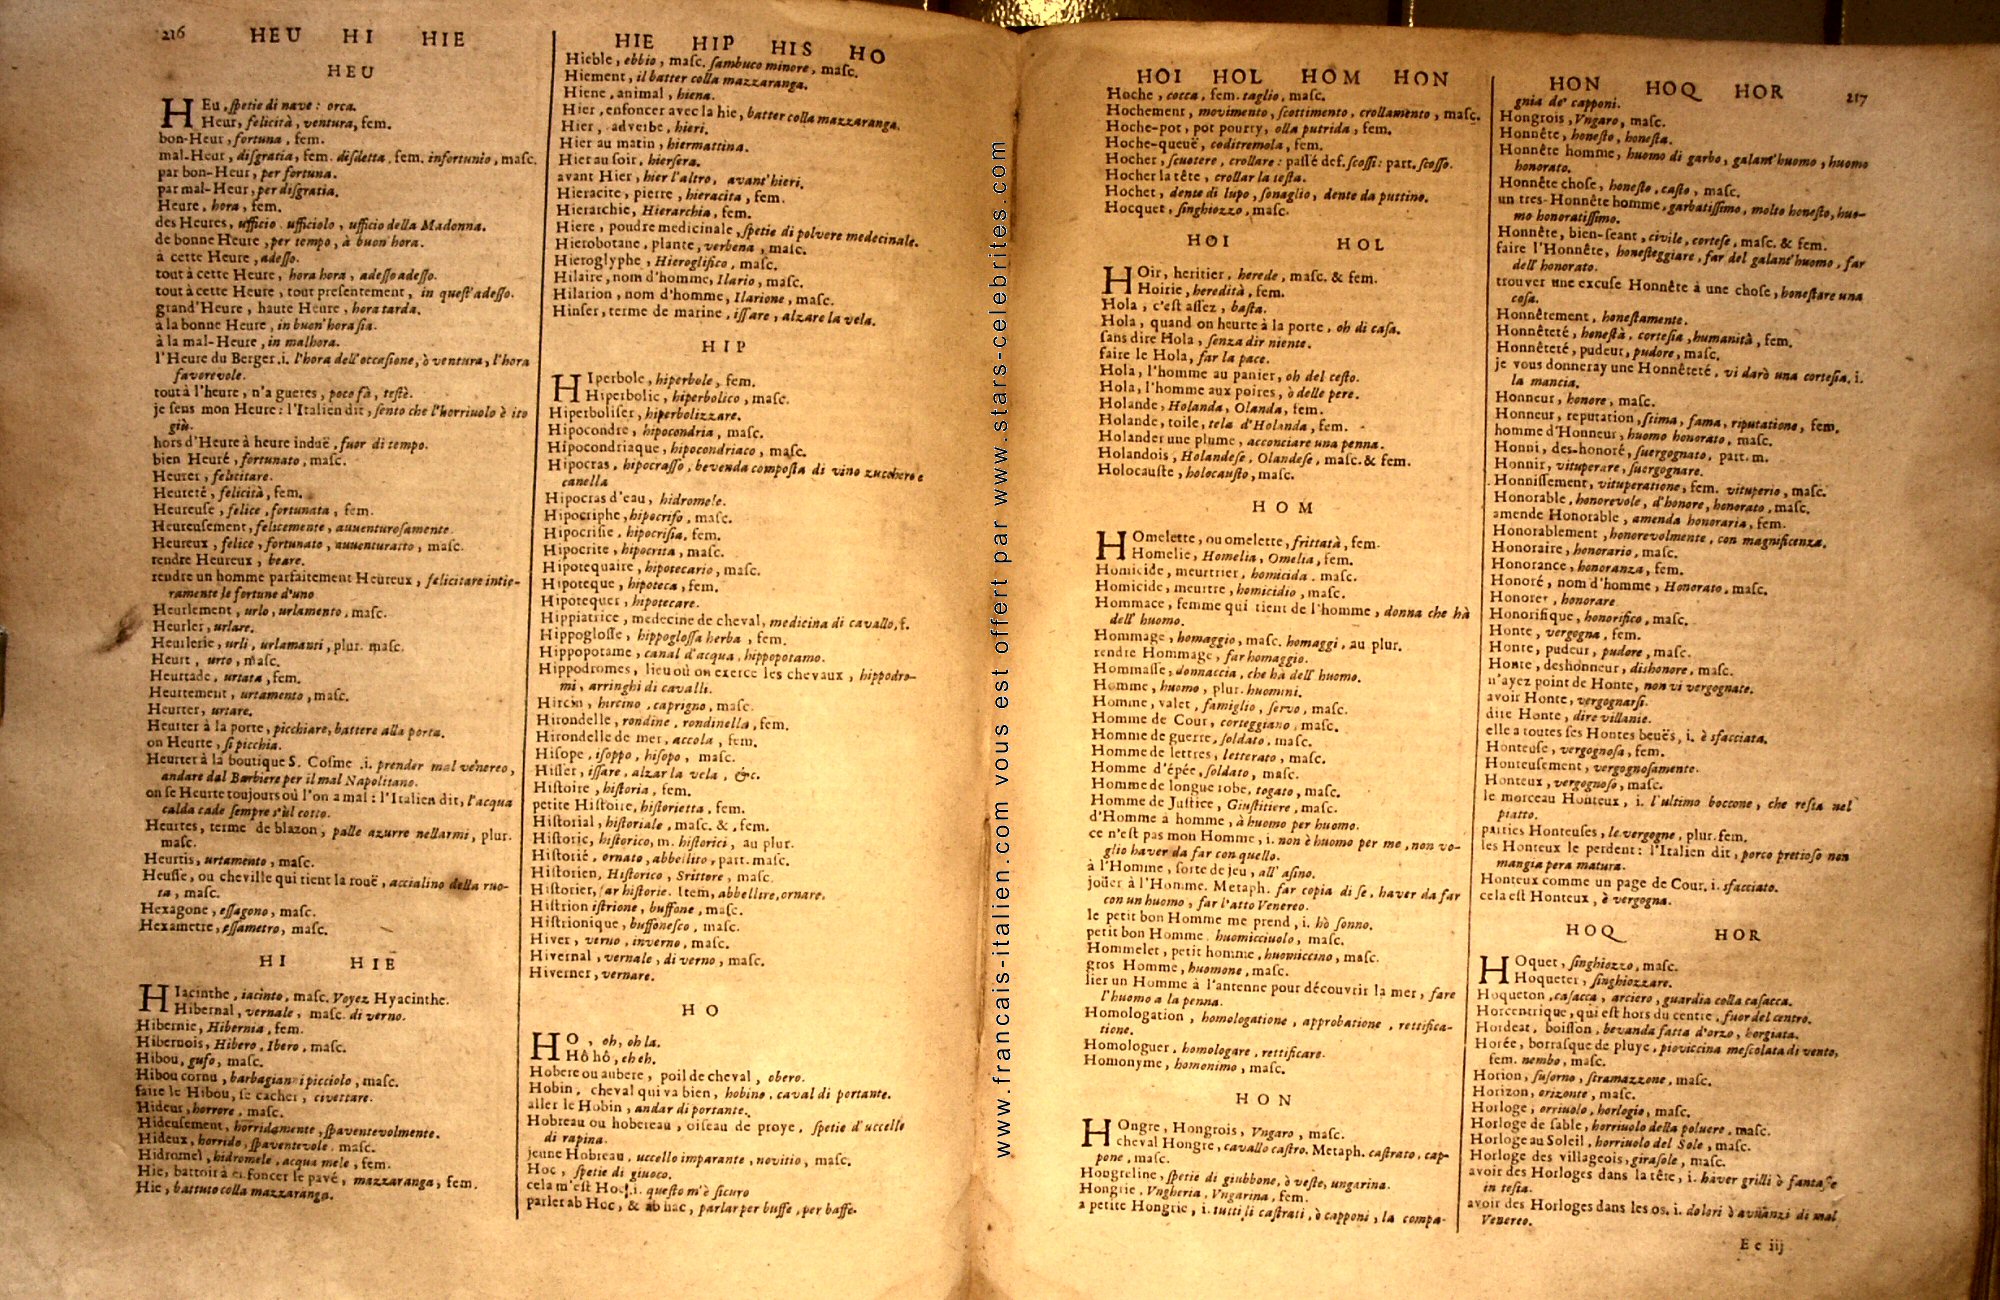 216 HEU HI HIE
HEU
HEu, ſpetie di nave : orca.
Heur, felicità, ventura, fem.
bon-Heur, fortuna, fem.
mal-Heur, diſgratia, fem. diſdetta, fem. infortunio, maſc.
par bon-Heur, per fortuna.
par mal-Heur, per diſgratia.
Heure, hora, fem.
des Heures, ufficio ufficiolo, ufficio della Madonna.
de bonne Heure, per tempo, à buon'hora.
à cette Heure, adeſſo.
tout à cette Heure, hora hora, adeſſo adeſſo.
tout à cette Heure, tout preſentement, in queſt'adeſſo.
grand'Heure, haute Heure, hora tarda.
à la bonne Heure, in buon'hora ſia.
à la mal-Heure, in malhora.
l'Heure du Berger. i. l'hora dell'occaſione, ò ventura, l'hora
favorevole.
tout à l'heure, n'a gueres, poco fà, teſtè.
je ſens mon Heure : l'Italien dit, ſento che l'horriuolo è ito
giù.
hors d'Heure à heure induë, fuor di tempo.
bien Heuré, fortunato, maſc.
Heurer, felicitare.
Heureté, felicità, fem.
Heureuſe, felice, fortunata, fem.
Heureuſement, felicemente, auuenturoſamente.
Heureux, felice, fortunato, auuenturatto, maſc.
rendre Heureux, beare.
rendre un homme parfaitement Heureux, felicitare intie-
ramente le fortune d'uno
Heurlement, urlo, urlamento, maſc.
Heurler, urlare.
Heurlerie, urli, urlamanti, plur. maſc.
Heurt, urto, maſc.
Heurtade, urtata, fem.
Heurtement, urtamento, maſc.
Heurter, urtare.
Heurter à la porte, picchiare, battere alla porta.
on Heurte, ſi picchia.
Heurter à la boutique S. Coſme .i. prender mal vénereo,
andare dal Barbiere per il mal Napolitano.
on ſe Heurte toujours où l'on a mal : l'Italien dit, l'acqua
calda cade ſempre s'ul cotto.
Heurtes, terme de blazon, palle azurre nell armi, plur.
maſc.
Heurtis, urtamento, maſc.
Heuſſe, ou cheville qui tient la rouë, accialino della ruo-
ta, maſc.
Hexagone, eſſagono, maſc.
Hexametre, eſſametro, maſc.
HI HIE
HIacinthe, iacinto, maſc. Voyez Hyacinthe.
Hibernal, vernale, maſc. di verno.
Hibernie, Hibernia, fem.
Hibernois, Hibero, Ibero, maſc.
Hibou, gufo, maſc.
Hibou cornu, barbagianni picciolo, maſc.
faire le Hibou, ſe cacher, civettare.
Hideur, horrore, maſc.
Hideuſement, horridamente, ſpaventevolmente.
Hideux, horrido, ſpaventevole, maſc.
Hidromel, hidromele, acqua mele, fem.
Hie, battoir à enfoncer le pavé, mazzaranga, fem.
Hié, battuto colla mazzaranga.
HIE HIP HIS HO
Hieble, ebbio, maſc. ſambuco minore, maſc.
Hiement, il batter colla mazzaranga.
Hiene, animal, hiena.
Hier, enfoncer avec la hie, batter colla mazzaranga.
Hier, adverbe, hieri.
Hier au matin, hiermattina.
Hier au ſoir, hierſera.
avant Hier, hier l'altro, avant'hieri.
Hieracite, pierre, hieracita, fem.
Hierarchie, Hierarchia, fem.
Hiere, poudre medicinale, ſpetie di polvere medecinale.
Hierobotane, plante, verbena, maſc.
Hieroglyphe, Hieroglifico, maſc.
Hilaire, nom d'homme, Ilario, maſc.
Hilarion, nom d'homme, Ilarione, maſc.
Hinſer, terme de marine, iſſare, alzare la vela.
HIP
HIperbole, hiperbole, fem.
Hiperbolic, hiperbolico, maſc.
Hiperboliſer, hiperbolizzare.
Hipocondre, hipocondria, maſc.
Hipocondriaque, hipocondriaco, maſc.
Hipocras, hipocraſſo, bevenda compoſta di vino zucchero e
canella
Hipocras d'eau, hidromele.
Hipocriphe, hipocrifo, maſc.
Hipocriſie, hipocriſia, fem.
Hipocrite, hipocrita, maſc.
Hipotequaire, hipotecario, maſc.
Hipoteque, hipoteca, fem.
Hipotequer, hipotecare.
Hippiatrice, medecine de cheval, medicina di cavallo, f.
Hippogloſſe, hippogloſſa herba, fem.
Hippopotame, canal d'acqua, hippopotamo.
Hippodromes, lieu où on exerce les chevaux, hippodro-
mi, arringhi di cavalli.
Hircin, hircino, caprigno, maſc.
Hirondelle, rondine, rondinella, fem.
Hirondelle de mer, accola, fem.
Hiſope, iſoppo, hiſopo, maſc.
Hiſſer, iſſare, alzar la vela, &c.
Hiſtoire, hiſtoria, fem.
petite Hiſtoire, hiſtorietta, fem.
Hiſtorial, hiſtoriale, maſc. &, fem.
Hiſtoric, hiſtorico, m. hiſtorici, au plur.
Hiſtorié, ornato, abbellito, part. maſc.
Hiſtorien, Hiſtorico, Srittore, maſc.
Hiſtorier, far hiſtorie. Item, abbellire, ornare.
Hiſtrion iſtrione, buffone, maſc.
Hiſtrionique, buffoneſco, maſc.
Hiver, verno, inverno, maſc.
Hivernal, vernale, di verno, maſc.
Hiverner, vernare.
HO
HO, oh, oh la.
Hô hô, eh eh.
Hobere ou aubere, poil de cheval, obero.
Hobin, cheval qui va bien, hobino, caval di portante.
aller le Hobin, andar di portante.
Hobreau ou hobereau, oiſeau de proye, ſpetie d'uccello
di rapina.
jeune Hobreau, uccello imparante, novitio, maſc.
Hoc, ſpetie di giuoco.
cela m'eſt Hoc, .i. queſto m'è ſicuro
parler ab Hoc, & ab hac, parlar per buffe, per baffe.
www.francais-italien.com vous est offert par www.stars-celebrites.com
HOI HOL HOM HON
Hoche, cocca, fem. taglio, maſc.
Hochement, movimento, ſcottimento, crollamento, maſc.
Hoche-pot, pot pourry, olla putrida, fem.
Hoche-queuë, coditremola, fem.
Hocher, ſcuotere, crollare : paſſé def. ſcoſſi : part. ſcoſſo.
Hocher la tête, crollar la teſta.
Hochet, dente di lupo, ſonaglio, dente da puttino.
Hocquet, ſinghiozzo, maſc.
HOI HOL
HOir, heritier, herede, maſc. & fem.
Hoirie, heredità, fem.
Hola, c'eſt aſſez, baſta.
Hola, quand on heurte à la porte, oh di caſa.
ſans dire Hola, ſenza dir niente.
faire le Hola, far la pace.
Hola, l'homme au panier, oh del ceſto.
Hola, l'homme aux poires, ò delle pere.
Holande, Holanda, Olanda, fem.
Holande, toile, tela d'Holanda, fem.
Holander une plume, acconciare una penna.
Holandois, Holandeſe, Olandeſe, maſc. & fem.
Holocauſte, holocauſto, maſc.
HOM
HOmelette, ou omelette, frittatà, fem.
Homelie, Homelia, Omelia, fem.
Homicide, meurtrier, homicida, maſc.
Homicide, meurtre, homicidio, maſc.
Hommace, femme qui tient de l'homme, donna che hà
dell' huomo.
Hommage, homaggio, maſc. homaggi, au plur.
rendre Hommage, far homaggio.
Hommaſſe, donnaccia, che hà dell' huomo.
Homme, huomo, plur. huomini.
Homme, valet, famiglio, ſervo, maſc.
Homme de Cour, corteggiano, maſc.
Homme de guerre, ſoldato, maſc.
Homme de lettres, letterato, maſc.
Homme d'épée, ſoldato, maſc.
Homme de longue robe, togato, maſc.
Homme de Juſtice, Giuſtitiere, maſc.
d'Homme à homme, à huomo per huomo.
ce n'eſt pas mon Homme, i. non è huomo per me, non vo-
glio haver da far con quello.
à l'Homme, ſorte de jeu, all' aſino.
joüer à l'Homme. Metaph. far copia di ſe, haver da far
con un huomo, far l'atto Venereo.
le petit bon Homme me prend, i. hò ſonno.
petit bon Homme, huomicciuolo, maſc.
Hommelet, petit homme, huomiccino, maſc.
gros Homme, huomone, maſc.
lier un Homme à l'antenne pour découvrir la mer, fare
l'huomo a la penna.
Homologation, homologatione, approbatione, rettifica-
tione.
Homologuer, homologare, rettificare.
Homonyme, homonimo, maſc.
HON
HOngre, Hongrois, Vngaro, maſc.
cheval Hongre, cavallo caſtro. Metaph. caſtrato, cap-
pone, maſc.
Hongreline, ſpetie di giubbone, ò veſte, ungarina.
Hongrie, Vngheria, Vngarina, fem.
a petite Hongrie, i. tutti li caſtrati, ò capponi, la compa-
HON HOQ HOR 217
gnia de' capponi.
Hongrois, Vngaro, maſc.
Honnête, honeſto, honeſta.
Honnête homme, huomo di garbo, galant'huomo, huomo
honorato.
Honnête choſe, honeſto, caſto, maſc.
un tres-Honnête homme, garbatiſſimo, molto honeſto, huo-
mo honoratiſſimo.
Honnête, bien-ſeant, civile, corteſe, maſc. & fem.
faire l'Honnête, honeſteggiare, far del galant'huomo, far
dell' honorato.
trouver une excuſe Honnête à une choſe, honeſtare una
coſa.
Honnêtement, honeſtamente.
Honnêteté, honeſtà, corteſia, humanità, fem.
Honnêteté, pudeur, pudore, maſc.
je vous donneray une Honnêteté, vi darò una corteſia, i.
la mancia.
Honneur, honore, maſc.
Honneur, reputation, ſtima, fama, riputatione, fem.
homme d'Honneur, huomo honorato, maſc.
Honni, des-honoré, ſuergognato, part. m.
Honnir, vituperare, ſuergognare.
Honniſſement, vituperatione, fem. vituperio, maſc.
Honorable, honorevole, d'honore, honorato, maſc.
amende Honorable, amenda honoraria, fem.
Honorablement, honorevolmente, con magnificenza.
Honoraire, honorario, maſc.
Honorance, honoranza, fem.
Honoré, nom d'homme, Honorato, maſc.
Honorer, honorare
Honorifique, honorifico, maſc.
Honte, vergogna, fem.
Honte, pudeur, pudore, maſc.
Honte, deshonneur, dishonore, maſc.
n'ayez point de Honte, non vi vergognate.
avoir Honte, vergognarſi.
dire Honte, dire villanie.
elle a toutes ſes Hontes beuës, i. è sfacciata.
Honteuſe, vergognoſa, fem.
Honteuſement, vergognoſamente.
Honteux, vergognoſo, maſc.
le morceau Honteux, i. l'ultimo boccone, che reſta nel
piatto.
parties Honteuſes, le vergogne, plur. fem.
les Honteux le perdent : l'Italien dit, porco pretioſo non
mangia pera matura.
Honteux comme un page de Cour, i. sfacciato.
cela eſt Honteux, è vergogna.
HOQ HOR
HOquet, ſinghiozzo, maſc.
Hoqueter, ſinghiozzare.
Hoqueton, caſacca, arciero, guardia colla caſacca.
Horcentrique, qui eſt hors du centre, fuor del centro.
Hordeat, boiſſon, bevanda fatta d'orzo, horgiata.
Horée, borraſque de pluye, pioviccina meſcolata di vento,
fem. nembo, maſc.
Horion, ſuſorno, ſtramazzone, maſc.
Horizon, orizonte, maſc.
Horloge, orriuolo, horlogio, maſc.
Horloge de ſable, horriuolo della poluere, maſc.
Horloge au Soleil, horriuolo del Sole, maſc.
Horloge des villageois, giraſole, maſc.
avoir des Horloges dans la tête, i. haver grilli ò fantaſie
in teſta.
avoir des Horloges dans les os. i. dolori ò avuanzi di mal
Venereo.
Ee iij